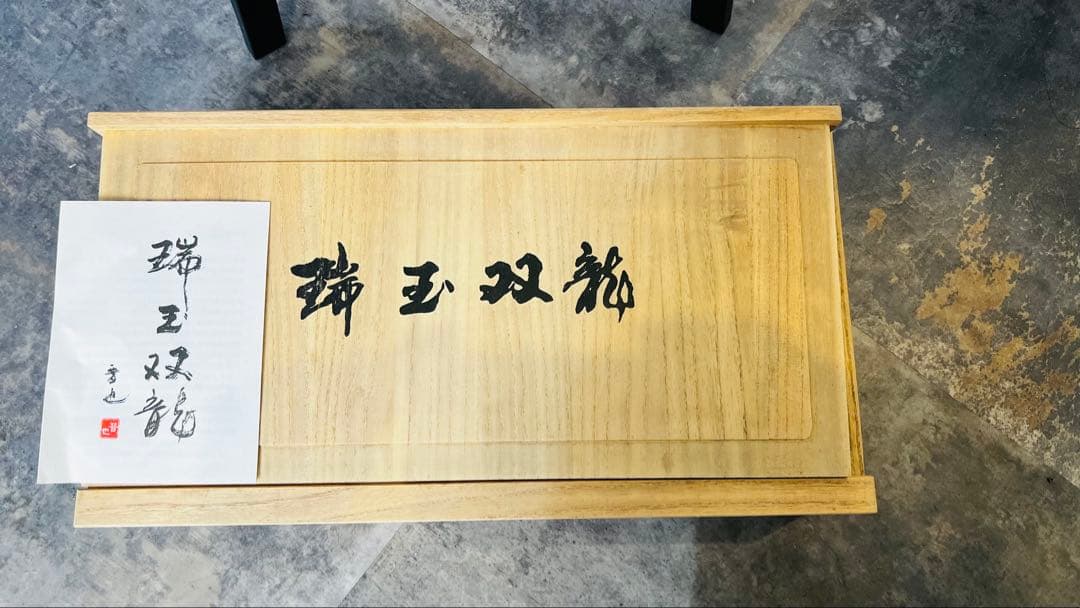 瑞玉双龍
瑞玉双龍